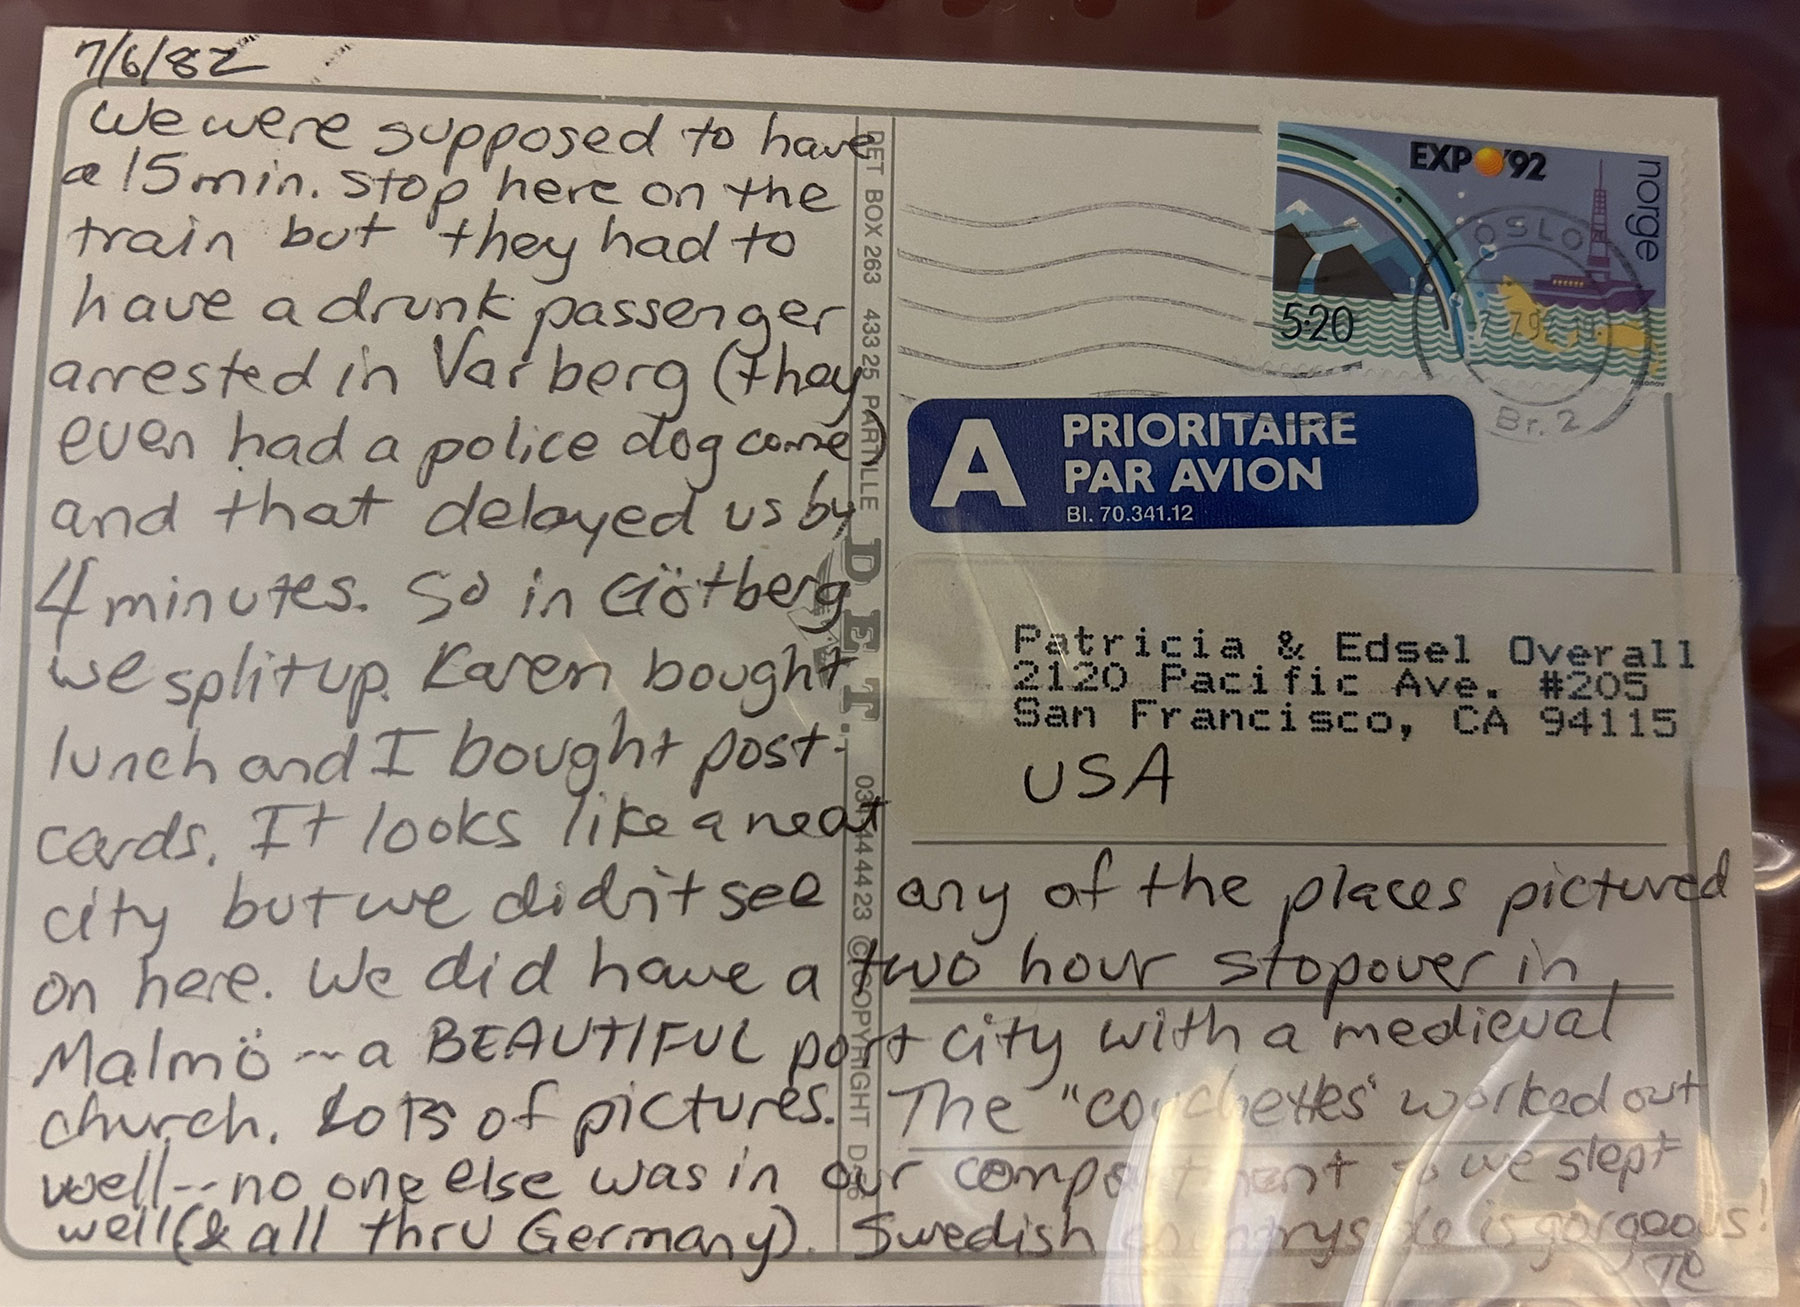 7/6/82
We were supposed to have
a 15 min. stop here on the
train but they had to
have a drunk passenger
arrested in Varberg (they
even had a police dog come)
and that delayed us by
4 minutes. So in Götberg
we split up. Karen bought
lunch and I bought post-
cards. It looks like a neat
city but we didn't see any of the places pictured
on here. We did have a two hour stopover in
Malmö -- a BEAUTIFUL port city with a medieval
church. Lots of pictures. The "couchettes" worked out
well -- no one else was in our compartment so we slept
well (& all thru Germany). Swedish countryside is gorgeous!
EXPO '92
norge
5·20
OSLO
Br. 2
A PRIORITAIRE
PAR AVION
Bl. 70.341.12
Patricia & Edsel Overall
2120 Pacific Ave. #205
San Francisco, CA 94115
USA
DET BOX 263 433 25 PARTILLE D E T. 44 44 23 © COPYRIGHT